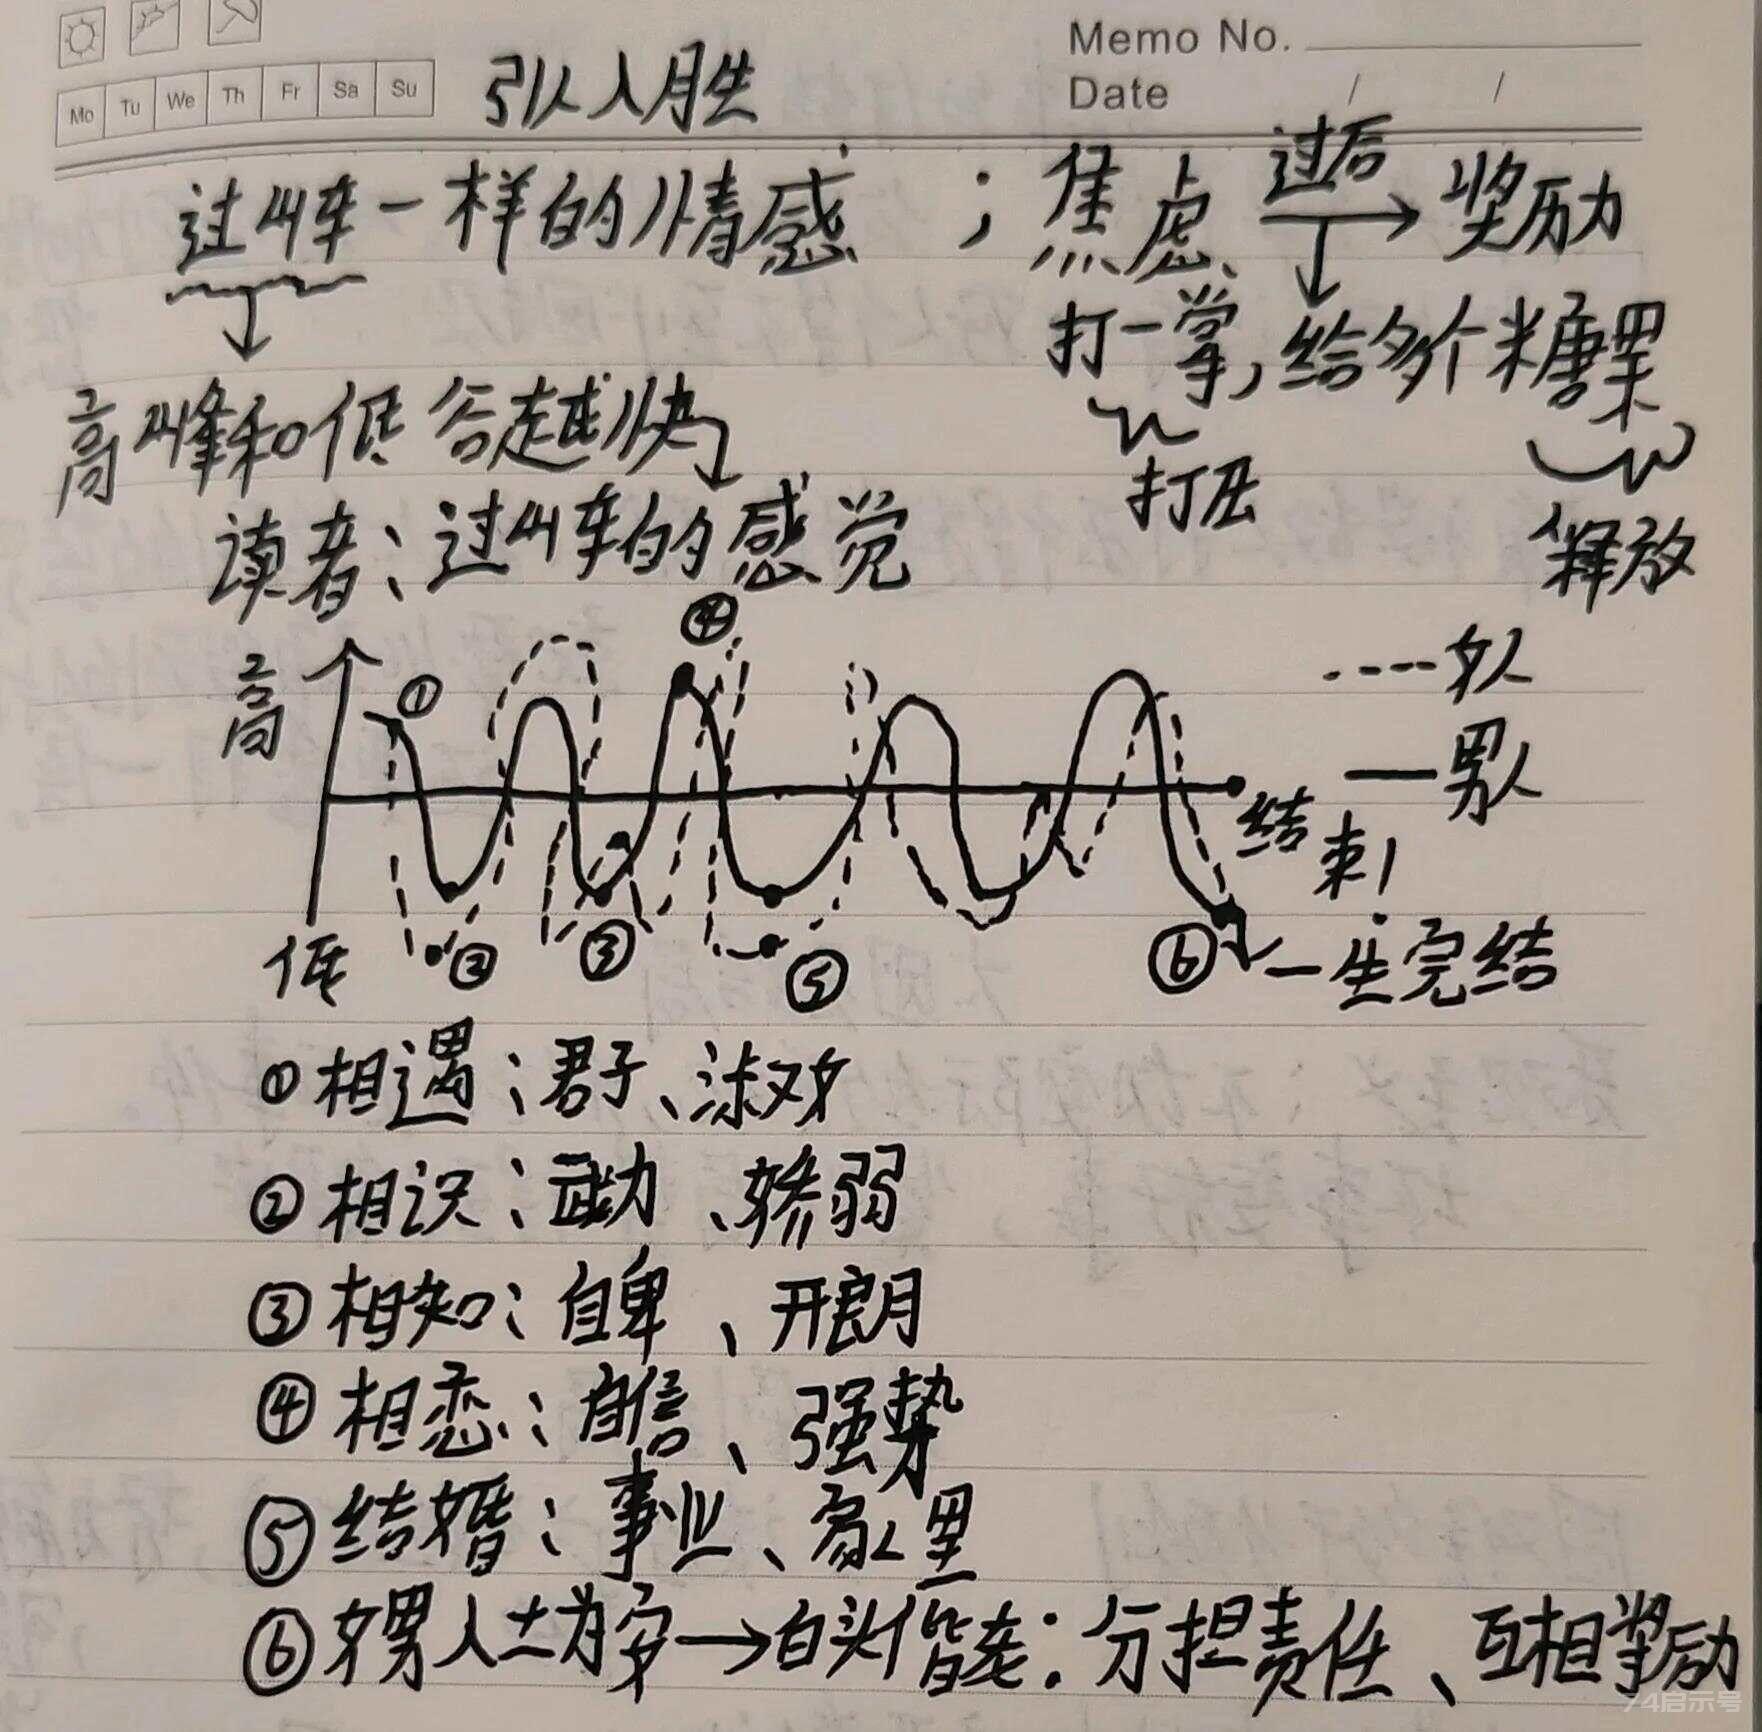 Memo No.
Mo Tu We Th Fr Sa Su
引人入胜
Date / /
过山车一样的情感;焦虑 过后 奖励
打一掌,给多个糖果
高峰和低谷越快
打压
读者:过山车的感觉
释放
④
高
①
女人
男人
结束!
低
②
③
⑤
⑥
一生完结
①相遇:君子、淑女
②相识:武力、娇弱
③相知:自卑、开朗
④相恋:自信、强势
⑤结婚:事业、家里
⑥ 白头偕老:分担责任、互相奖励
74启示号